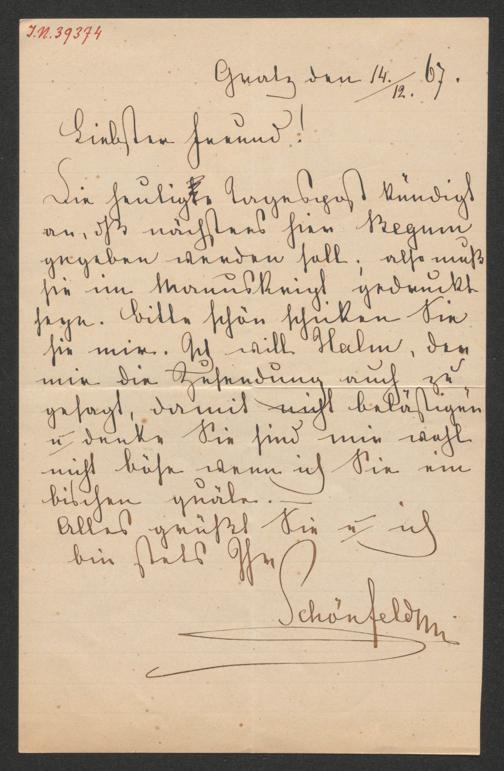 J.N. 39374
Gratz den 14./12. 67.
Liebster Freund!
Die heutige Tagespost kündigt
an, daß nächstens hier Begum
gegeben werden soll; also muß
sie im Manuskript gedruckt
seyn. Bitte schön schicken Sie
sie mir. Ich will Halm, der
mir die Zusendung auch zu
gesagt, damit nicht belästigen
u denke Sie sind mir wohl
nicht böse wenn ich Sie ein
bischen quäle. —
Alles grüßt Sie u ich
bin stets Ihr
Schönfeld